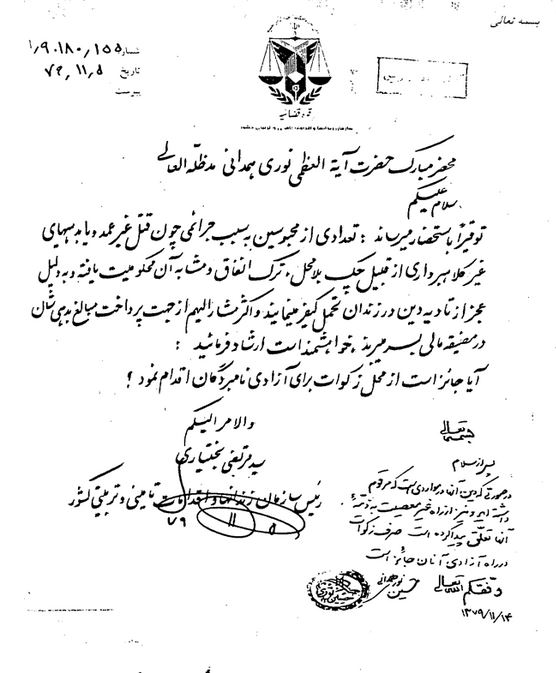 بسمه تعالی
شماره ۱٫۹۰۱۸۰٫۱۵۵
تاریخ ۷۹٫۱۱٫۵
پیوست
قوه قضائیه
محضر مبارک حضرت آیة العظمی نوری همدانی مدظله العالی
سلام علیکم
توقیراً باستحضار میرساند : تعدادی از محبوسین به سبب جرائمی چون قتل غیر عمد و یا بدهیهای
غیر کلاهبرداری از قبیل چک بلامحل، ترک انفاق و مشابه آن محکومیت یافته و به دلیل
عجز از تادیه دین در زندان تحمل کیفر مینمایند و اکثر مشارالیهم از جهت پرداخت مبالغ بدهی شان
در مضیقه مالی بسر میبرند، خواهشمند است ارشاد فرمائید :
آیا جائز است از محل زکوات برای آزادی نامبردگان اقدام نمود ؟
والامر الیکم
سید مرتضی بختیاری
رئیس سازمان زندانها و اقدامات تامینی و تربیتی کشور
۷۹ ۱۱ ۵
بسمه تعالی
پس از سلام
در صورتی که دین آنان در مواردی است که مرقوم
داشته اید و نیز از راه غیر معصیت به ذمّه
آنان تعلّق پیدا کرده است صرف زکوات
در راه آزادی آنان جائز است
وفقکم الله تعالی
حسین نوری همدانی
۱۳۷۹/۱۱/۱۴